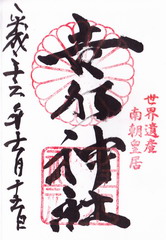 世界遺産
南朝皇居
吉水神社
平成二十六年十一月十五日